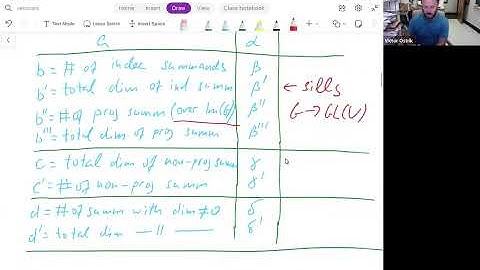 Home
Insert
Draw
View
Class Notebook
Text Mode
Lasso Select
Insert Space
G α
b = # of indec summands β
b' = total dim of ind summ β' ← sills
b'' = # of proj summ (over Im(G)) β'' G → GL(V)
b''' = total dim of proj summ β'''
c = total dim of non-proj summ γ
c' = # of non-proj summ γ'
d = # of summ with dim ≠ 0 δ
d' = total dim —||— δ'
Victor Ostrik